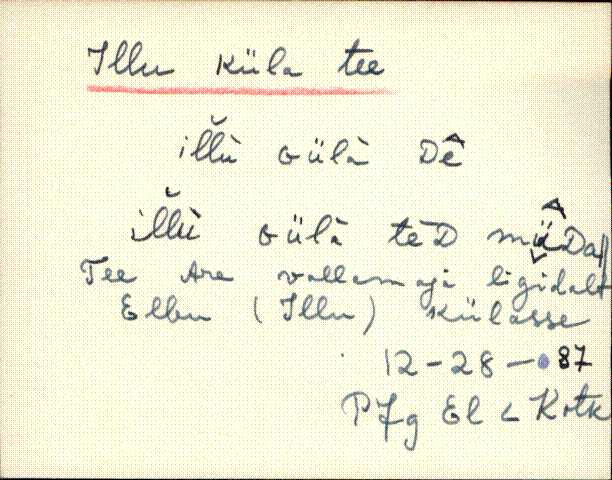 Illu küla tee
il̆lù Gülà Dê
il̆lù Gülà tèD mü̂Dall
Tee Are vallamaja ligidalt
Elbu (Illu) külasse
12-28-87
PJg El < Kotk